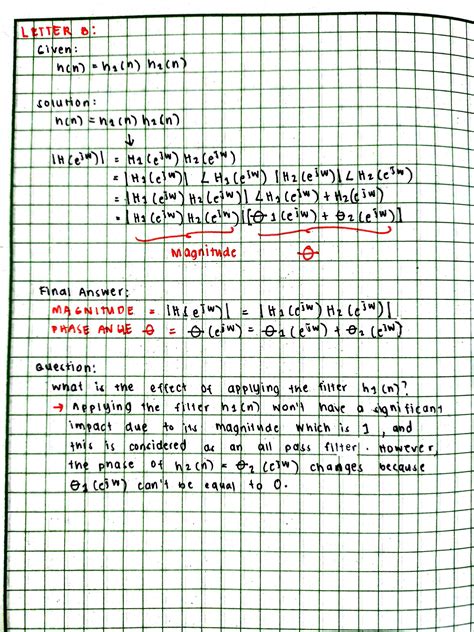 LETTER B:
Given:
h(n) = h1(n) h2(n)
solution:
h(n) = h1(n) h2(n)
↓
|H(e^jw)| = H1(e^jw) H2(e^jw)
= |H1(e^jw)| ∠H1(e^jw) |H2(e^jw)| ∠H2(e^jw)
= |H1(e^jw) H2(e^jw)| ∠H1(e^jw) + H2(e^jw)
= |H1(e^jw) H2(e^jw)| [θ1(e^jw) + θ2(e^jw)]
Magnitude θ
Final Answer:
MAGNITUDE = |H(e^jw)| = |H1(e^jw) H2(e^jw)|
PHASE ANGLE θ = θ(e^jw) = θ1(e^jw) + θ2(e^jw)
Question:
What is the effect of applying the filter h1(n)?
→ Applying the filter h1(n) won't have a significant
impact due to its magnitude which is 1, and
this is considered as an all pass filter. However,
the phase of h2(n) = θ2(e^jw) changes because
θ1(e^jw) can't be equal to 0.